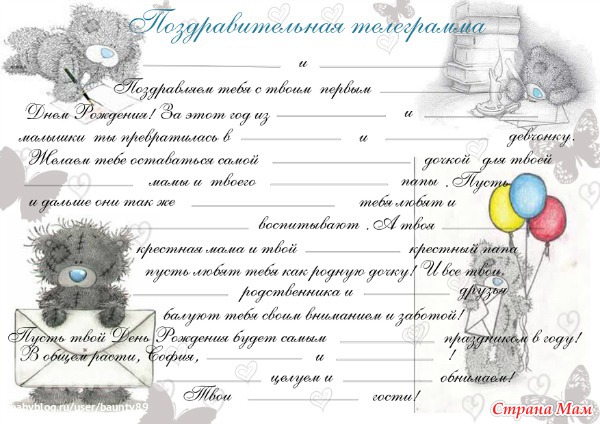 Поздравительная телеграмма
____________ и ____________
Поздравляем тебя с твоим первым ____________
Днем Рождения! За этот год из ____________ и ____________
малышки ты превратилась в ____________ и ____________ девчонку.
Желаем тебе оставаться самой ____________ дочкой для твоей
____________ мамы и твоего ____________ папы . Пусть
и дальше они так же ____________ тебя любят и
____________ воспитывают . А твоя ____________
крестная мама и твой ____________ крестный папа
пусть любят тебя как родную дочку! И все твои
____________ родственника и ____________ друзья
балуют тебя своим вниманием и заботой!
Пусть твой День Рождения будет самым ____________ праздником в году!
В общем расти, София, ____________ и ____________ !
____________ целуем и ____________ обнимаем!
Твои ____________ гости!
babyblog.ru/user/baunty89
Страна Мам